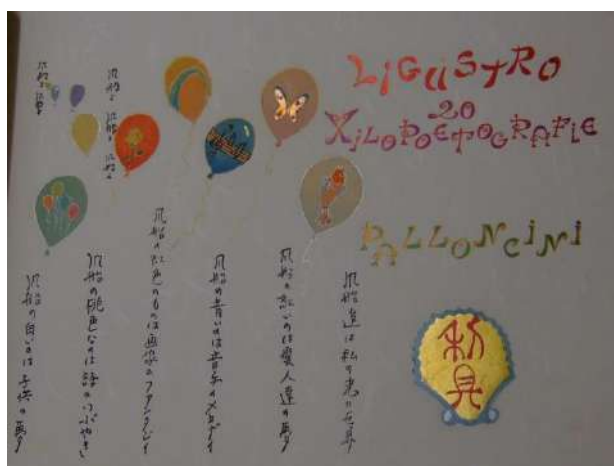 LiGUSTRO
20
XiLOPOETOGRAFiE
PALLONCiNi
風船達は私の光の
風船の紅いのは愛人達の夢
風船の青いのは音楽のメロディ
風船の虹色のものは画家のファンタジイ
風船の桃色なのは詩のつぶやき
風船の白いのは子供の夢
風船よ 風船よ 風船よ
利具